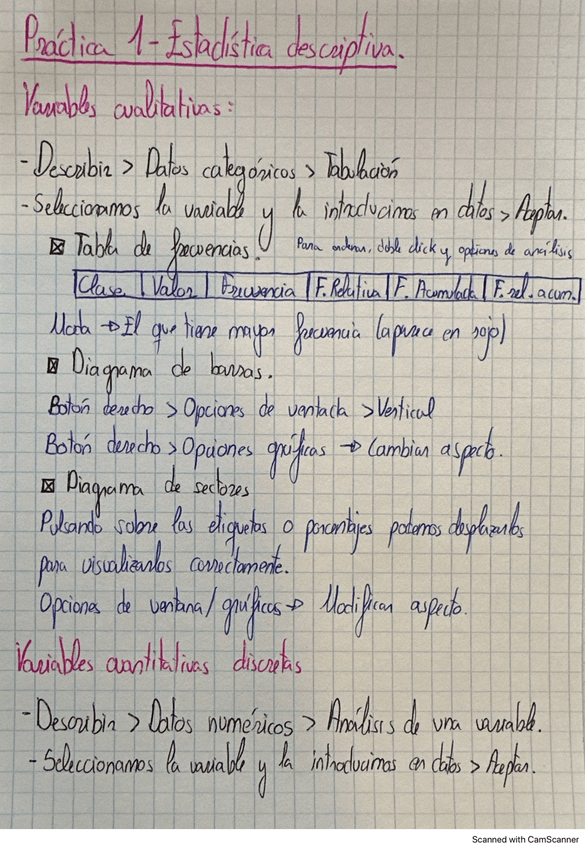 Práctica 1 - Estadística descriptiva.
Variables cualitativas:
- Describir > Datos categóricos > Tabulación
- Seleccionamos la variable y la introducimos en datos > Aceptar.
☒ Tabla de frecuencias. Para ordenar, doble click y opciones de análisis
Clase | Valor | Frecuencia | F. Relativa | F. Acumulada | F. rel. acum.
Moda → El que tiene mayor frecuencia (aparece en rojo)
☒ Diagrama de barras.
Botón derecho > Opciones de ventana > Vertical
Botón derecho > Opciones gráficas → Cambiar aspecto.
☒ Diagrama de sectores
Pulsando sobre las etiquetas o porcentajes podemos desplazarlos
para visualizarlos correctamente.
Opciones de ventana/gráficas → Modificar aspecto.
Variables cuantitativas discretas
- Describir > Datos numéricos > Análisis de una variable.
- Seleccionamos la variable y la introducimos en datos > Aceptar.
Scanned with CamScanner